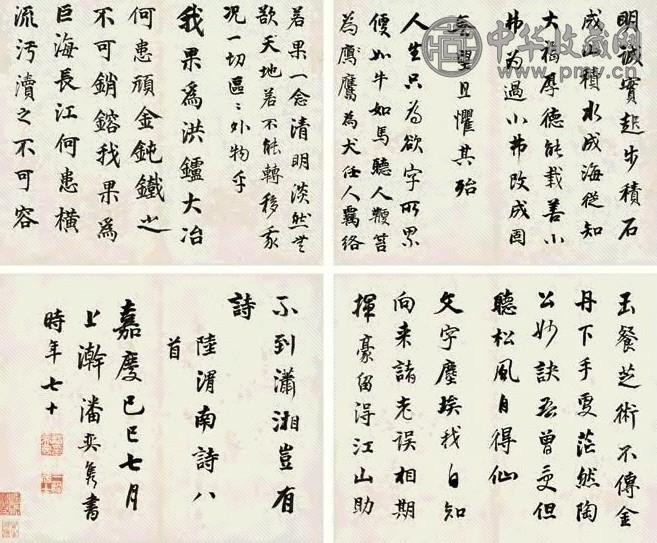 明誠實起步積石
成山積水成海從知
大福厚德能載善小
弗為過小弗改成困
無望且懼其殆
人生只為欲字所累
便如牛如馬聽人鞭笞
為鷹鷹為犬任人羈絡
若果一念清明淡然無
欲天地若不能轉移我
況一切區〻外物乎
我果為洪鑪大冶
何患頑金鈍鐵之
不可銷鎔我果為
巨海長江何患橫
流汚瀆之不可容
玉餐芝術不傳金
丹下手處茫然陶
公妙訣吾曾受但
聽松風自得仙
文字塵埃我自知
向来諸老誤相期
揮豪留得江山助
不到瀟湘豈有
詩
陸渭南詩八
首
嘉慶己巳七月
上澣潘奕雋書
時年七十
中华收藏网
www.pmcv.cn